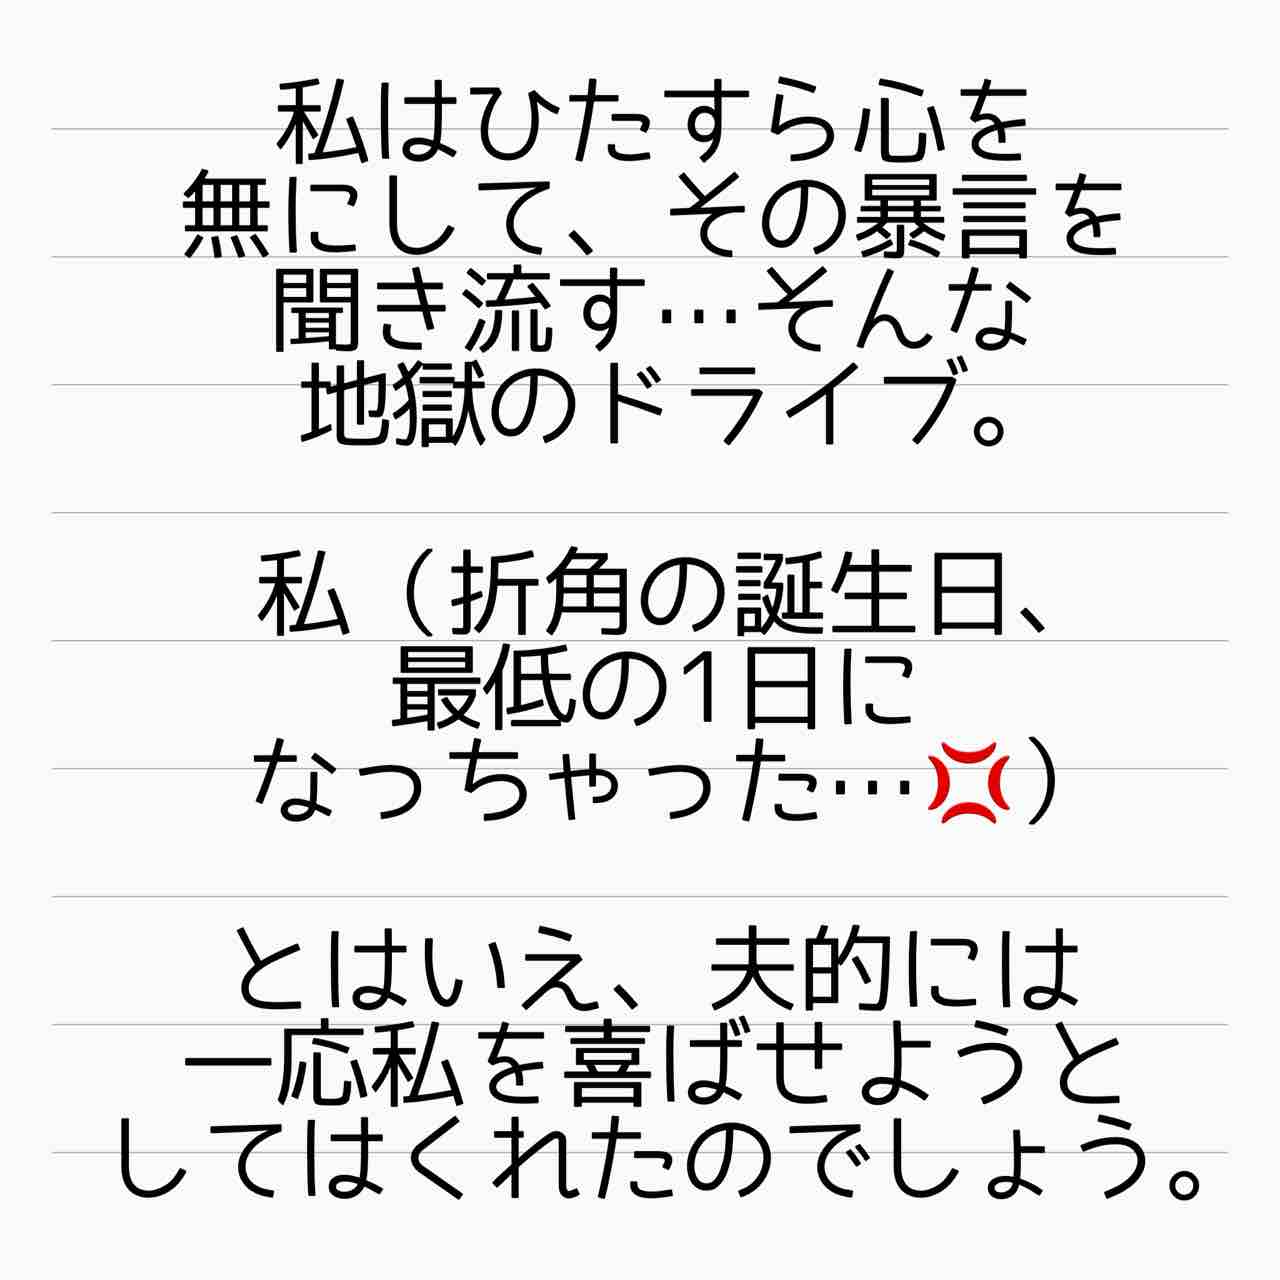 私はひたすら心を
無にして、その暴言を
聞き流す…そんな
地獄のドライブ。
私（折角の誕生日、
最低の1日に
なっちゃった…💢）
とはいえ、夫的には
一応私を喜ばせようと
してはくれたのでしょう。